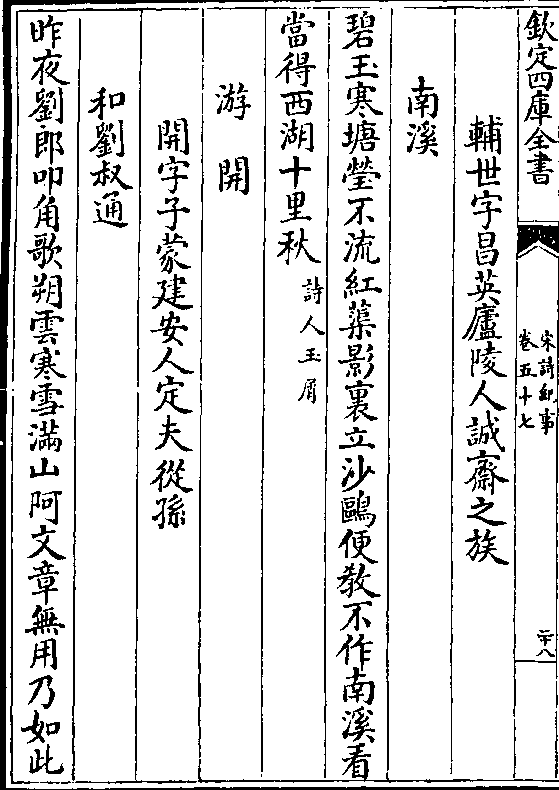 欽定四庫全書
宋詩紀事
卷五十七
二十八
輔世字昌英廬陵人誠齋之族
南溪
碧玉寒塘瑩不流紅蕖影裏立沙鷗便教不作南溪看
當得西湖十里秋詩人玉屑
游開
開字子蒙建安人定夫從孫
和劉叔通
昨夜劉郎叩角歌朔雲寒雪滿山阿文章無用乃如此